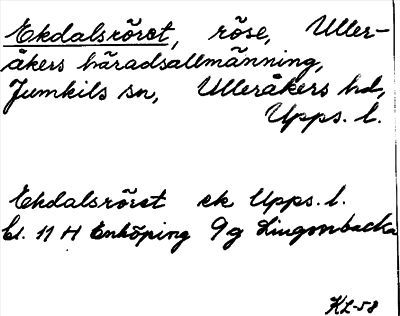 Ekdalsröret, röse, Uller-
åkers häradsallmänning,
Jumkils sn, Ulleråkers hd,
Upps. l.
Ekdalsröret ek Upps. l.
bl. 11 H Enköping 9g Lingonbacka
KL-58